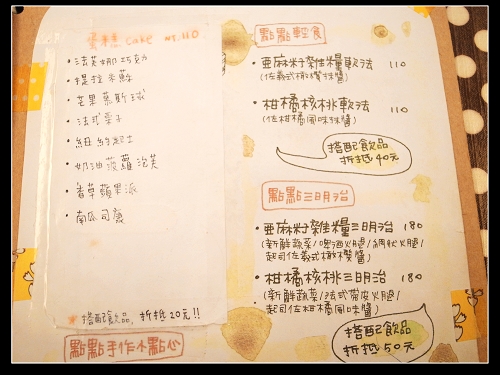 蛋糕 cake NT:110
・法芙娜巧克
・提拉米蘇
・芒果慕斯球
・法式栗子
・紐約起士
・奶油菠蘿泡芙
・香草蘋果派
・南瓜司康
★搭配飲品, 折抵20元!!
點點手作小點心
點點輕食
・亞麻籽雜糧軟法 110
(佐義式橄欖抹醬)
・柑橘核桃軟法 110
(佐柑橘風味抹醬)
搭配飲品
折抵40元
點點三明治
・亞麻籽雜糧三明治 180
(新鮮蔬菜/啤酒火腿/網狀火腿/
起司佐義式橄欖醬)
・柑橘核桃三明治 180
(新鮮蔬菜/法式帶皮火腿/
起司佐柑橘風味醬)
搭配飲品
折抵50元